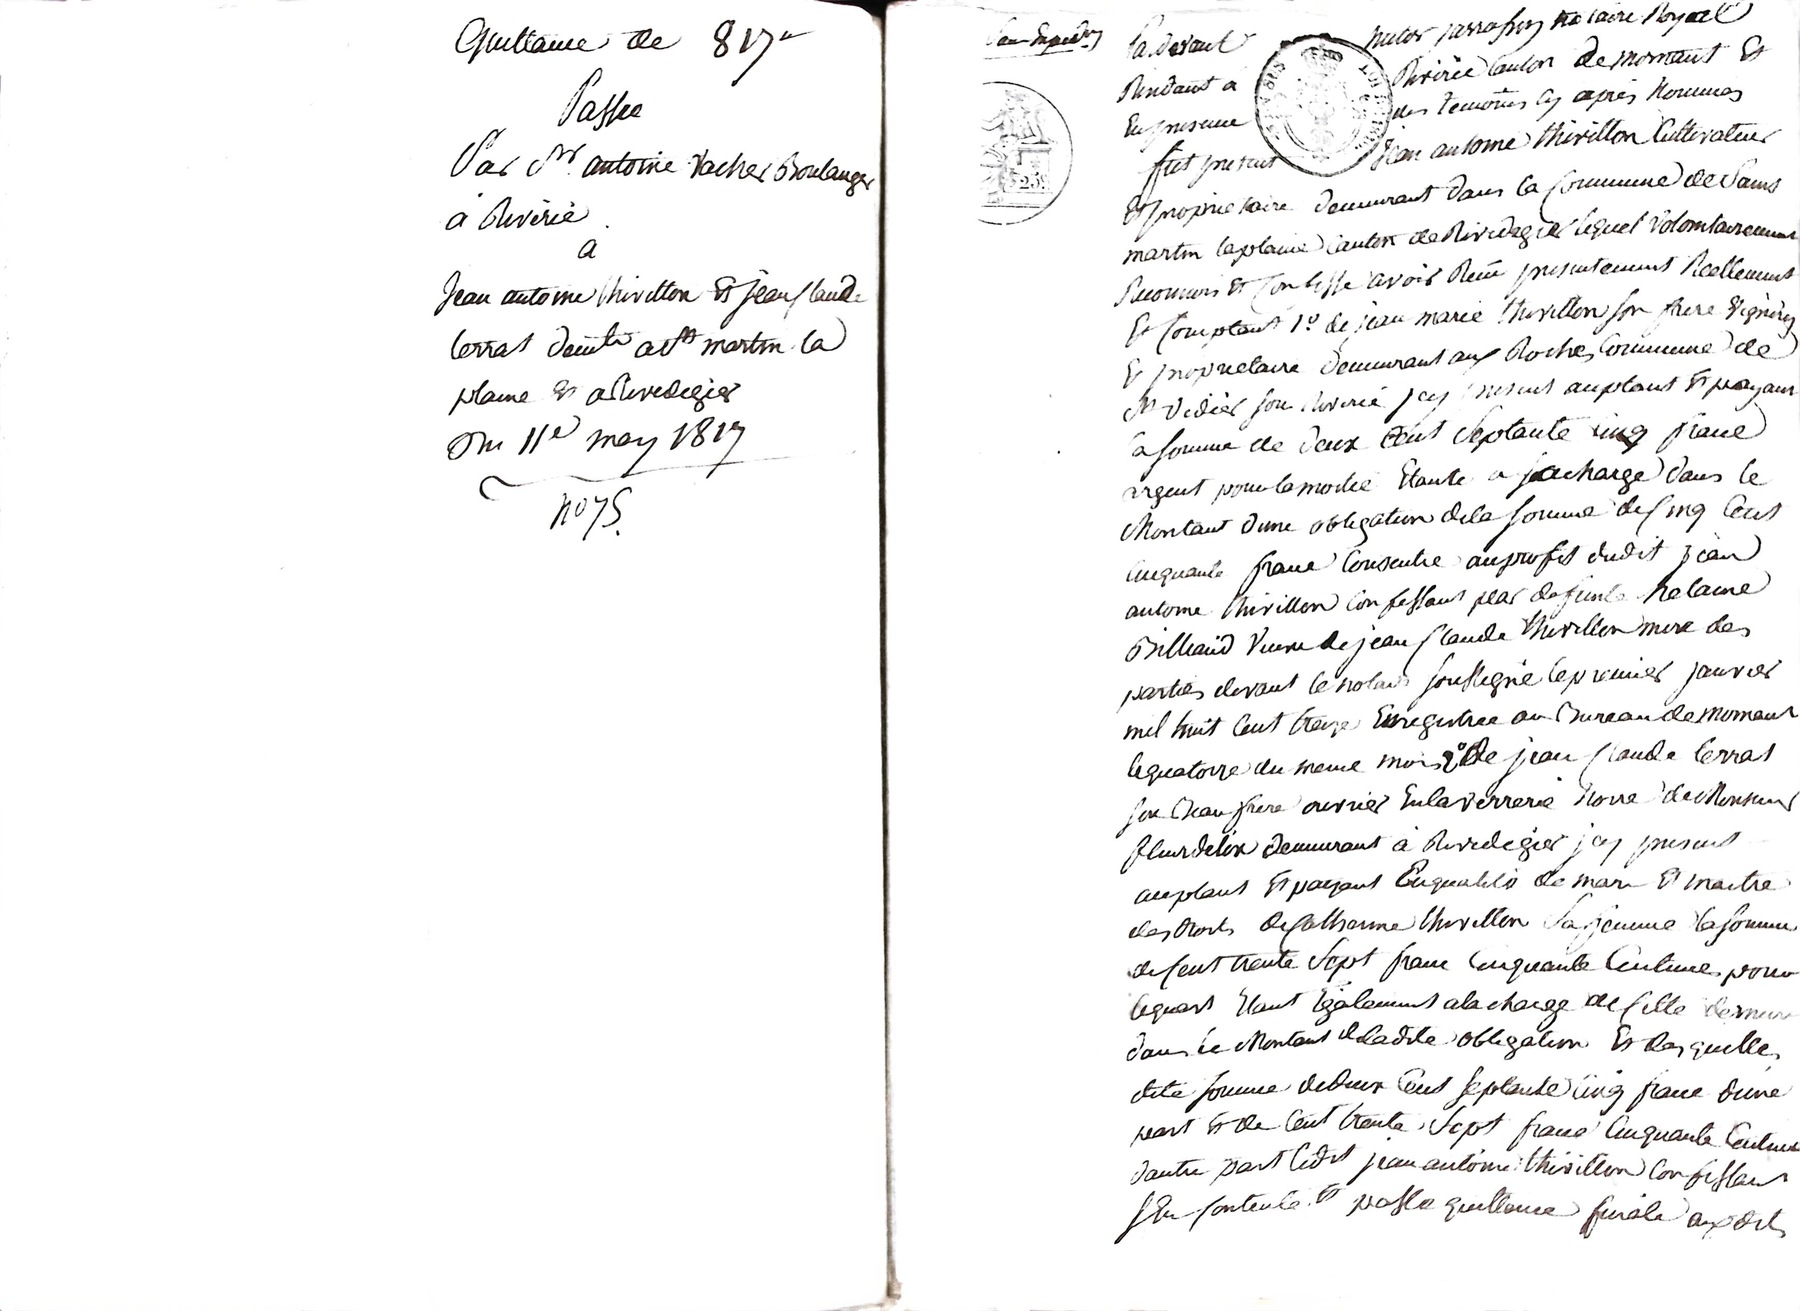 Quittance de 817 fr
Passée
Par Sr. antoine vacher Boulanger
à Riverie
a
Jean antoine thivillon Et Jean Claude
terras demts a st martin la
plaine Et a Rivedegier
Du 11e may 1817
no 75.
Pardevant notaire Royal
Résidant à Riverie Canton de mornant Et
En presence des temoins cy après Nommés
fut present Jean antoine thivillon Cultivateur
Et proprietaire demeurant dans la Commune de Saint
martin laplaine Canton de Rivedegier lequel volontairement
Reconnois Et Confesse avoir Reçu presentement Reellement
Et Comptant 1o de jean marie thivillon son frere vigneron
Et proprietaire demeurant aux Roches Commune de
st Didier sou Riverie jcy present acceptant Et payant
la somme de deux Cent Septante cinq franc
argent pour la moitié Etante a sa charge dans le
Montant d'une obligation dela somme de Cinq Cent
Cinquante franc Consentie auprofit dudit jean
antoine thivillon Confessant par defunte helaine
Billiard veuve de jean Claude thivillon mere des
parties devant le notaire soussigné le premier janvier
mil huit Cent treize Enregistrée au Bureau de mornant
lequatorze du meme mois 2o De jean Claude terras
son Beau frere ouvrier Enlaverrerie Noire de Monsieur
fleurdelix demeurant à Rivedegier jcy present
acceptant Et payant Enqualité de mari Et maitre
des droits de Catherine thivillon Sa femme la somme
de Cent trente Sept franc Cinquante Centimes pour
lequart Etant Egalement ala charge de Celle derniere
dans le Montant de Ladite obligation Et desquelles
dite somme dedeux Cent septante cinq franc d'une
part Et de Cent trente Sept franc Cinquante Centimes
dautre part ledit jean antoine thivillon Confessant
sEn Contente Et passe quittance finale auxdits